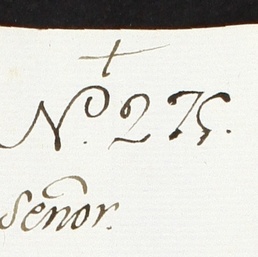 +
Nº. 275.
Señor.